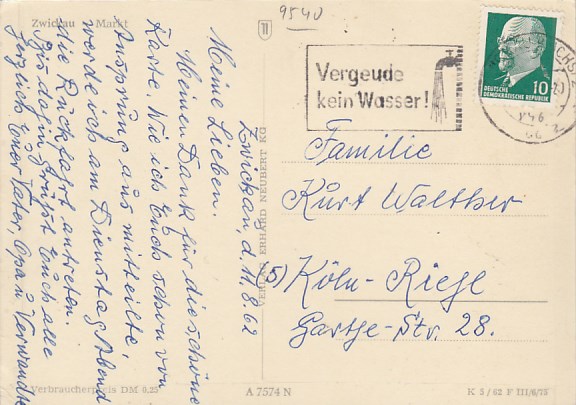 Zwickau Markt
9540
Zwickau, d. 11.8.62
Meine Lieben.
Meinen Dank für die schöne
Karte. Wie ich Euch schon von
Ansprung aus mitteilte,
werde ich am Dienstag Abend
die Rückfahrt antreten.
Bis dahin grüßt Euch alle
herzlich Euer Vater, Opa u. Verwandte
Verbraucherpreis DM 0.25
VERLAG ERHARD NEUBERT KG
A 7574 N
Vergeude
kein Wasser!
DEUTSCHE
DEMOKRATISCHE REPUBLIK
10
Familie
Kurt Walther
(5) Köln-Riehl
Str. 28.
K 5/62 F III/6/75